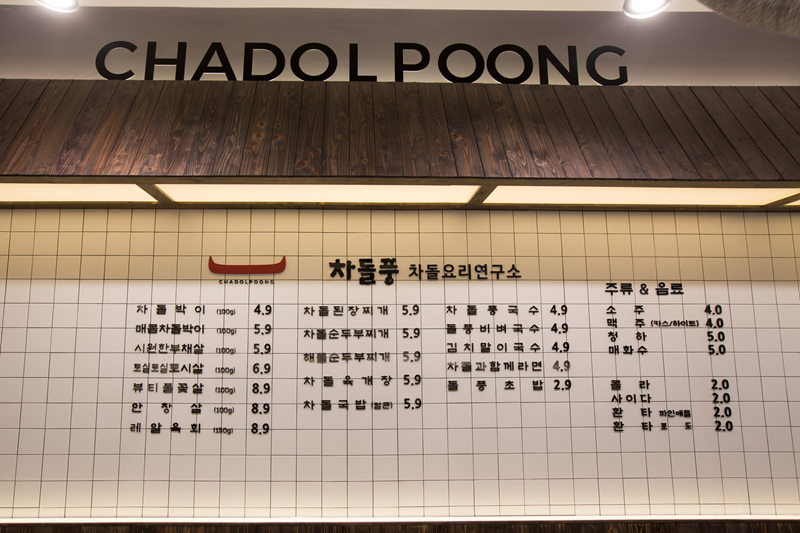 CHADOL POONG
CHADOLPOONG
차돌풍 차돌요리연구소
차돌박이 (100g) 4.9
매콤차돌박이 (100g) 5.9
시원한부채살 (100g) 5.9
토실토실토시살 (100g) 6.9
뷰티풀꽃살 (100g) 8.9
안창살 (100g) 8.9
레알육회 (150g) 8.9
차돌된장찌개 5.9
차돌순두부찌개 5.9
해물순두부찌개 5.9
차돌육개장 5.9
차돌국밥 (얼큰) 5.9
차돌풍국수 4.9
돌풍비벼국수 4.9
김치말이국수 4.9
차돌과함께라면 4.9
돌풍초밥 2.9
주류 & 음료
소주 4.0
맥주 (카스/하이트) 4.0
청하 5.0
매화수 5.0
콜라 2.0
사이다 2.0
환타 파인애플 2.0
환타 포도 2.0